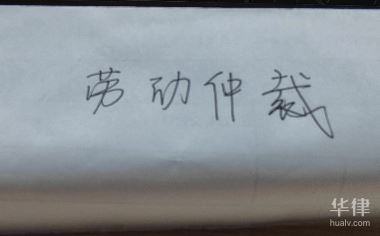 劳动仲裁
华律
hualv.com